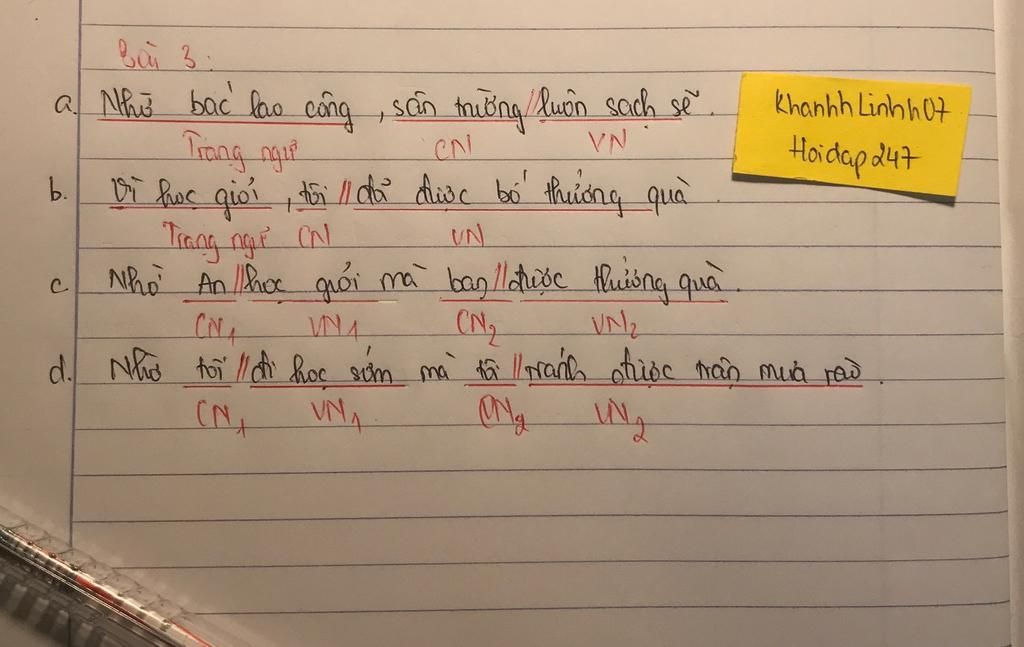 Bài 3:
a. Nhờ bác lao công, sân trường // luôn sạch sẽ.
Trạng ngữ CN VN
b. Vì học giỏi, tôi // đã được bố thưởng quà.
Trạng ngữ CN VN
c. Nhờ An // học giỏi mà bạn // được thưởng quà.
CN1 VN1 CN2 VN2
d. Nhờ tôi // đi học sớm mà tôi // tránh được trận mưa rào.
CN1 VN1 CN2 VN2
KhanhhLinhh07
Hoidap247